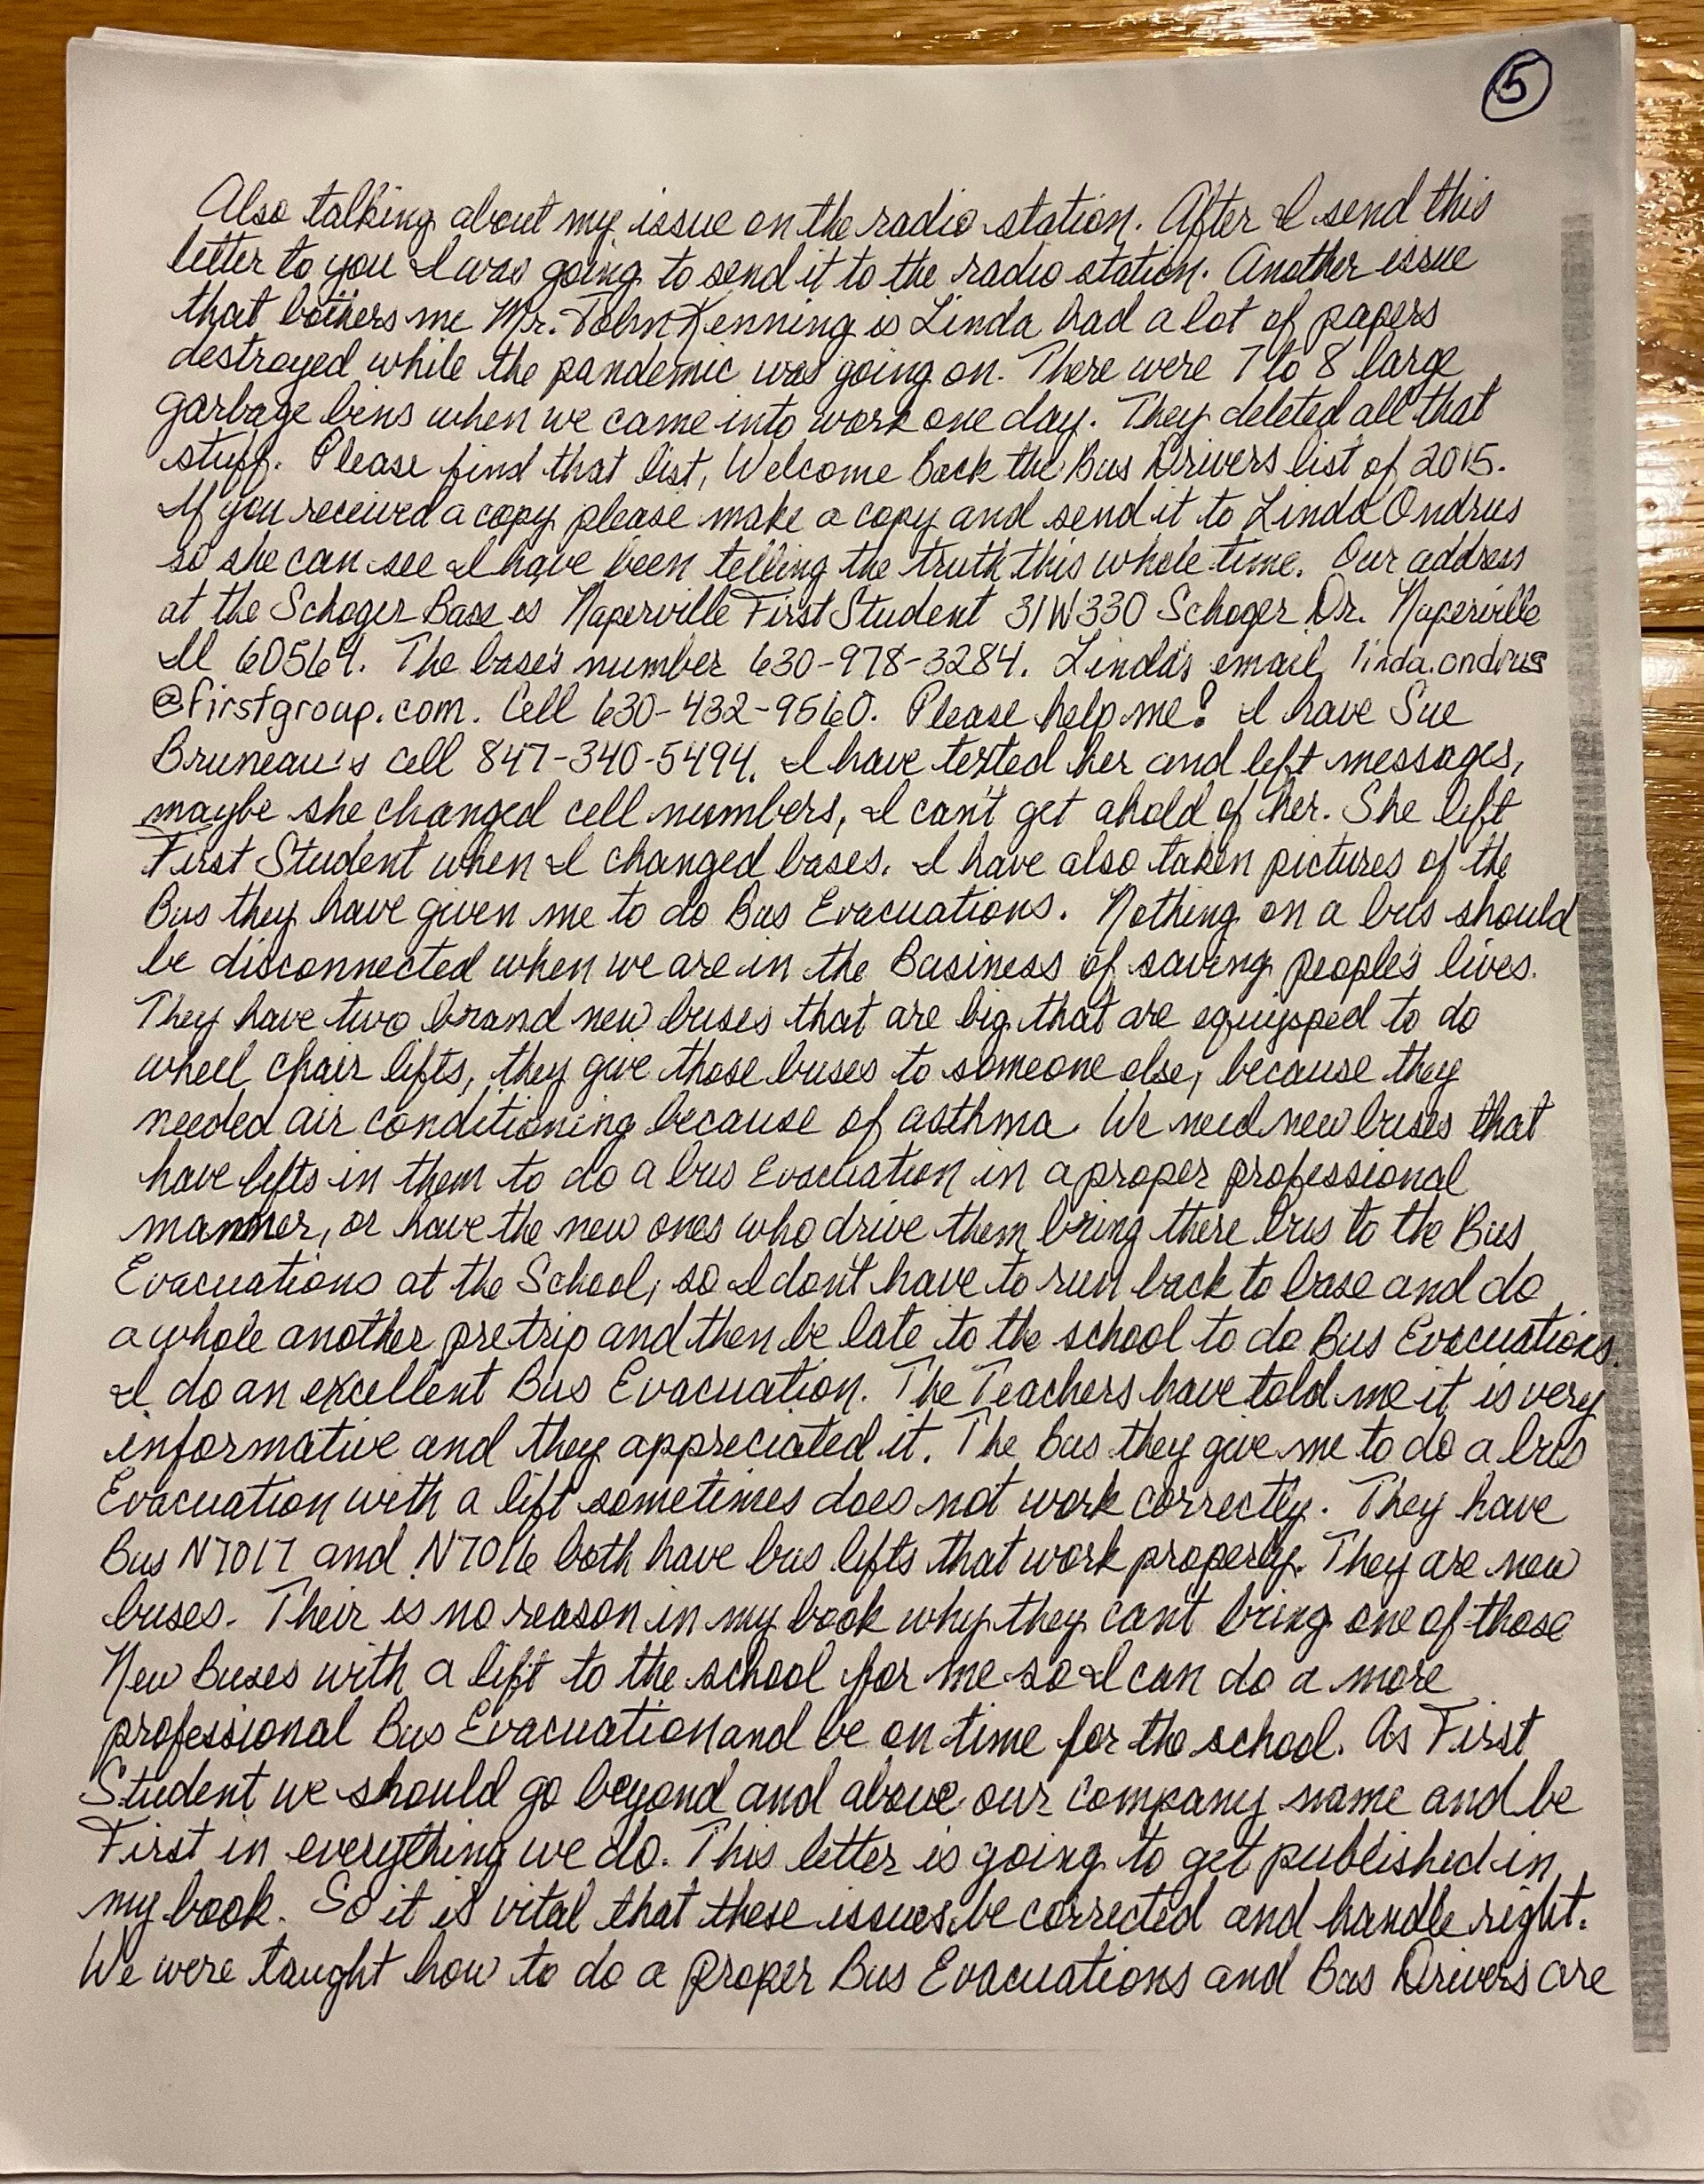 5
Also talking about my issue on the radio station. After I send this
letter to you I was going to send it to the radio station. Another issue
that bothers me Mr. John Kenning is Linda had a lot of papers
destroyed while the pandemic was going on. There were 7 to 8 large
garbage bins when we came into work one day. They deleted all that
stuff. Please find that list, Welcome Back the Bus Drivers list of 2015.
If you received a copy please make a copy and send it to Linda Ondrus
so she can see I have been telling the truth this whole time. Our address
at the Schoger Base is Naperville First Student 31W330 Schoger Dr. Naperville
Il 60564. The base's number 630-978-3284. Linda's email linda.ondrus
@firstgroup.com. Cell 630-432-9560. Please help me? I have Sue
Bruneau's cell 847-340-5494. I have texted her and left messages,
maybe she changed cell numbers, I can't get ahold of her. She left
First Student when I changed bases. I have also taken pictures of the
Bus they have given me to do Bus Evacuations. Nothing on a bus should
be disconnected when we are in the Business of saving people's lives.
They have two brand new buses that are big that are equipped to do
wheel chair lifts, they give those buses to someone else, because they
needed air conditioning because of asthma. We need new buses that
have lifts in them to do a bus Evacuation in a proper professional
manner, or have the new ones who drive them bring there bus to the Bus
Evacuations at the School, so I don't have to run back to base and do
a whole another pretrip and then be late to the school to do Bus Evacuations.
I do an excellent Bus Evacuation. The Teachers have told me it is very
informative and they appreciated it. The Bus they give me to do a bus
Evacuation with a lift sometimes does not work correctly. They have
Bus N7017 and N7016 both have bus lifts that work properly. They are new
buses. Their is no reason in my book why they can't bring one of those
New Buses with a lift to the school for me so I can do a more
professional Bus Evacuation and be on time for the school. As First
Student we should go beyond and above our company name and be
First in everything we do. This letter is going to get published in
my book. So it is vital that these issues be corrected and handle right.
We were taught how to do a proper Bus Evacuations and Bus Drivers are